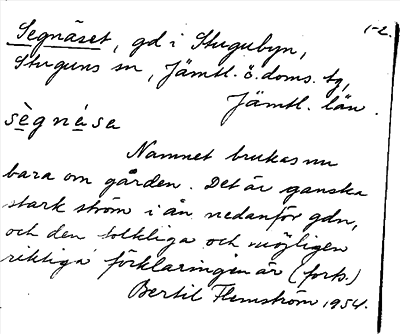 1-2.
Segnäset, gd i Stugubyn,
Stuguns sn, Jämtl. ö. doms. tg,
Jämtl. län.
sègnésa
Namnet brukas nu
bara om gården. Det är ganska
stark ström i ån nedanför gdn,
och den folkliga och möjligen
riktiga förklaringen är (forts.)
Bertil Flemström, 1954.